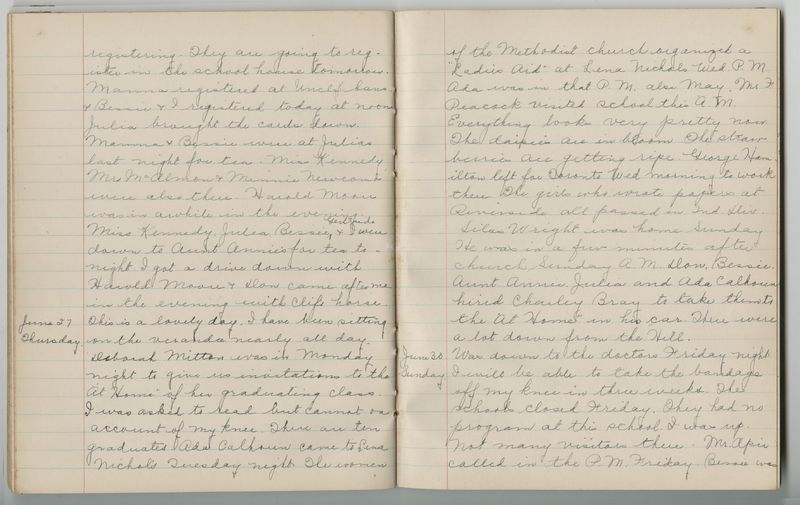 registering. They are going to reg-
ister in the school house tomorrow.
Mamma registered at Uncle
& Bessie & I registered today at noon
Julia brought the cards down.
Mamma & Bessie were at Julias
last night for tea. Miss Kennedy
Mrs McAlmon & Minnie Newcomb
were also there. Harold Moore
was in awhile in the evening.
Gertrude
Miss Kennedy, Julia Bessie, & I were
down to Aunt Annie's for tea to-
night. I got a drive down with
Harold Moore & Don came after me
in the evening with Clif's horse.
June 27
Thursday
This is a lovely day. I have been sitting
on the veranda nearly all day.
Deborah Mitton was in Monday
night to give us invitations to the
At Home" of her graduating class.
I was asked to read but cannot on
account of my knee. There are ten
graduates. Ada Calhoun came to Lena
Nichols Tuesday night. The women
of the Methodist church organized a
"Ladies Aid" at Lena Nichols Wed P.M.
Ada was in that P.M. also May. Mr F.
Peacock visited school this A.M.
Everything looks very pretty now
The daisies are in bloom The straw-
berries are getting ripe. George Ham-
ilton left for Toronto Wed morning to work
there The girls who wrote papers at
Riverside all passed in 2nd Div.
Silas Wright was home Sunday
He was in a few minutes after
church Sunday A.M. Don, Bessie,
Aunt Annie, Julia and Ada Calhoun
hired Charley Bray to take them to
the "At Home" in his car. There were
a lot down from the Hill.
June 30
Sunday
Was down to the doctors Friday night
I will be able to take the bandage
off my knee in three weeks. The
schools closed Friday. They had no
program at this school I was up.
Not many visitors there. Mr
called in the P.M. Friday. Bessie was